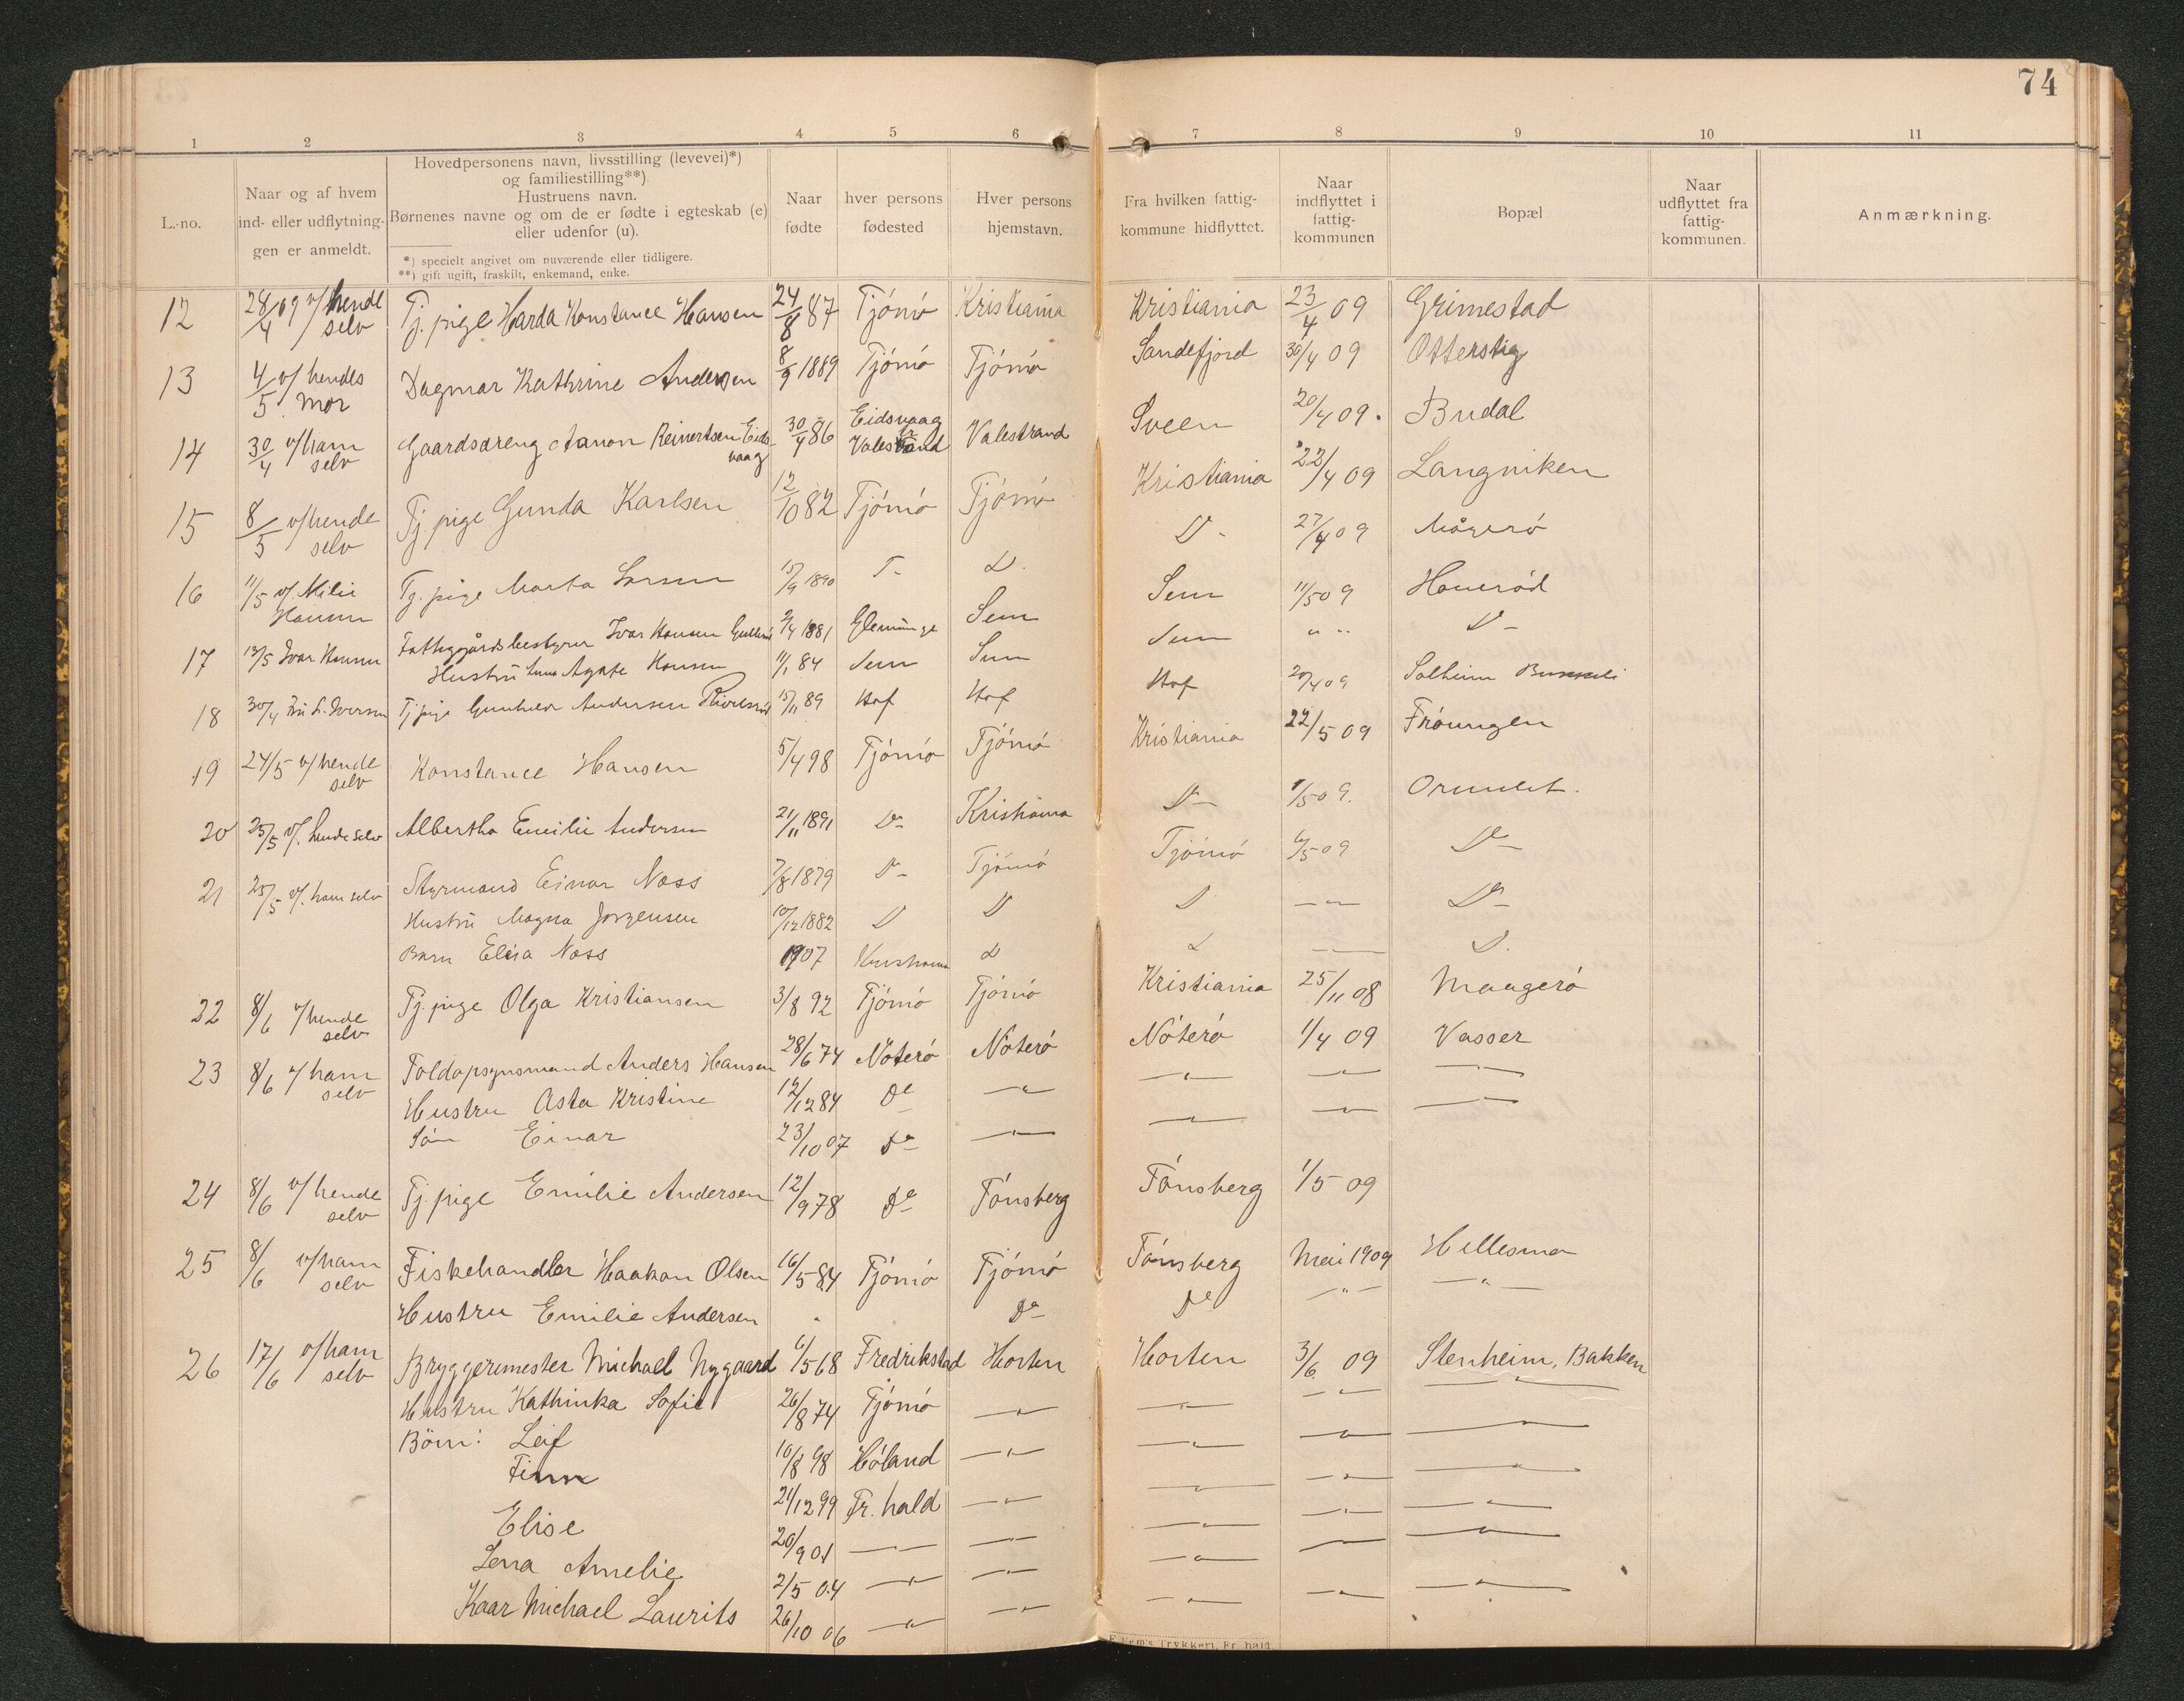 74
1 2 3 4 5 6 7 8 9 10 11
L.-no.
Naar og af hvem
ind- eller udflytning-
gen er anmeldt.
Hovedpersonens navn, livsstilling (levevei)*)
og familiestilling**)
Hustruens navn.
Børnenes navne og om de er fødte i egteskab (e)
eller udenfor (u).
*) specielt angivet om nuværende eller tidligere.
**) gift ugift, fraskilt, enkemand, enke.
Naar
fødte
hver persons
fødested
Hver persons
hjemstavn.
Fra hvilken fattig-
kommune hidflyttet.
Naar
indflyttet i
fattig-
kommunen
Bopæl
Naar
udflyttet fra
fattig-
kommunen.
Anmærkning.
12 28/4 09 v/ hende selv Tj. pige Harda Konstance Hansen 24/8 87 Tjömö Kristiania Kristiania 23/4 09 Grimestad
13 4/5 v/ hendes mor Dagmar Kathrine Andersen 8/9 1889 Tjömö Tjömö Sandefjord 30/4 09 Otterstig
14 30/4 v/ ham selv Gaardsdreng Aanon Reinertsen Eidsvaag 30/4 86 Eidsvaag Valestrand Valestrand Sveen 20/4 09. Budal
15 8/5 v/ hende selv Tj. pige Gunda Karlsen 12/10 82 Tjömö Tjömö Kristiania 22/4 09 Langviken
16 11/5 v/ Milie Hansen Tj. pige Marta Larsen 15/9 1890 T- D. D- 27/4 09 Mågerö
17 12/5 Ivar Hansen Fattiggårdsbestyrer Ivar Hansen 2/4 1881 Glemminge Sem Sem 11/5 09 Hauerød
Hustru Agate Hansen 11/1 84 Sem Sem Sem " " D-
18 30/4 L. Iversen Tj pige Gunhild Andersen 15/11 89 Hof Hof Hof 20/4 09 Solheim
19 24/5 v/ hende selv Konstance Hansen 5/4 98 Tjömö Tjömö Kristiania 22/5 09 Fröungen
20 25/5 v/. hende selv Albertha Emilie Andersen 21/11 1891 Do Kristiania D- 1/5 09. Ormelet.
21 25/5 v/. ham selv Styrmand Einar Næss 7/8 1879 D- Tjömö Tjömö 6/5 09 Do
Hustru Magna Jørgensen 10/12 1882 D D D — " — Do
Barn Elisa Næss 1907 Kristiania D D — " — D.
22 8/6 v/ hende selv Tj. pige Olga Kristiansen 3/8 92 Tjömö Tjömö Kristiania 25/11 08 Maagerö
23 8/6 v/ ham selv Toldopsynsmand Anders Hansen 28/6 74 Nöterö Nöterö Nöterö 1/4 09 Vasser
Hustru Asta Kristine 12/12 84 Do — " — — " — — " — — " —
Sön Einar 23/10 07 Do — " — — " — — " — — " —
24 8/6 v/ hende selv Tj. pige Emilie Andersen 12/9 78 Do Tönsberg Tönsberg 1/5 09
25 8/6 v/ ham selv Fiskehandler Haakon Olsen 16/5 84 Tjömö Tjömö Tönsberg Mai 1909 Hellesmo
Hustru Emilie Andersen " Do Do — " — — " —
26 17/6 v/ ham selv Bryggerimester Michael Nygaard 6/5 68 Fredrikstad Horten Horten 3/6 09 Stenheim, Bakken
Hustru Kathinka Sofie 26/8 74 Tjömö — " — — " — — " — — " —
Börn: Leif 10/8 98 Höland — " — — " — — " — — " —
Finn 24/12 99 Fr. hald — " — — " — — " — — " —
Elise 20/9 01 — " — — " — — " — — " — — " —
Lena Amelie 2/5 04 — " — — " — — " — — " — — " —
Kaar Michael Laurits 26/10 06 — " — — " — — " — — " — — " —
Trykkeri, Fr. hald.